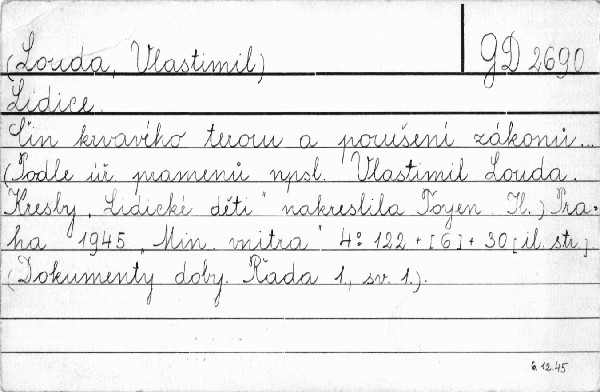 (Louda, Vlastimil)
GD 2690
Lidice.
Čin krvavého teroru a porušení zákonů...
(Podle úř. pramenů npsl. Vlastimil Louda.
Kresby „Lidické děti" nakreslila Toyen. Il.) Pra-
ha 1945 „Min. vnitra" 4° 122 + [6] + 30 [il. str.]
(Dokumenty doby. Řada 1., sv. 1.).
6.12.45